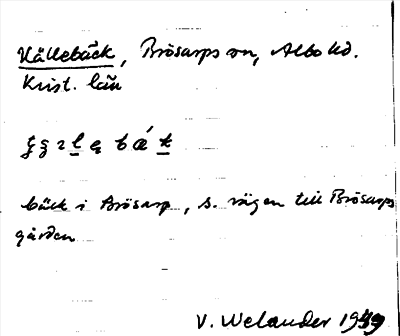 Källebäck, Brösarps sn, Albo hd.
Krist. län
bäck i Brösarp, s. vägen till Brösarps
gården
V. Welander 1939